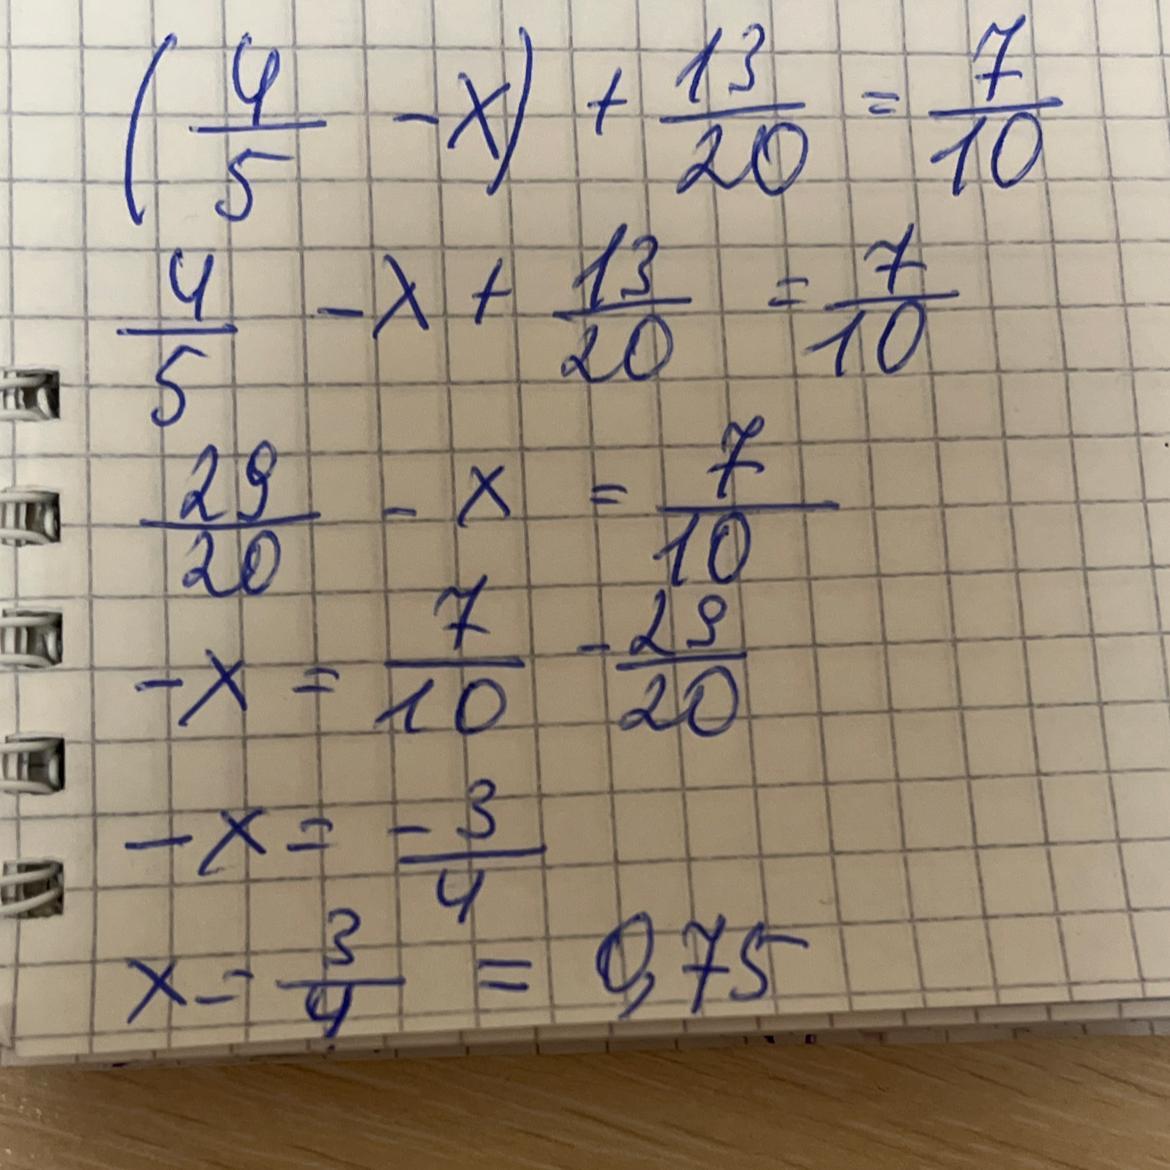 (4/5 - x) + 13/20 = 7/10
4/5 - x + 13/20 = 7/10
29/20 - x = 7/10
-x = 7/10 - 29/20
-x = -3/4
x = 3/4 = 0,75